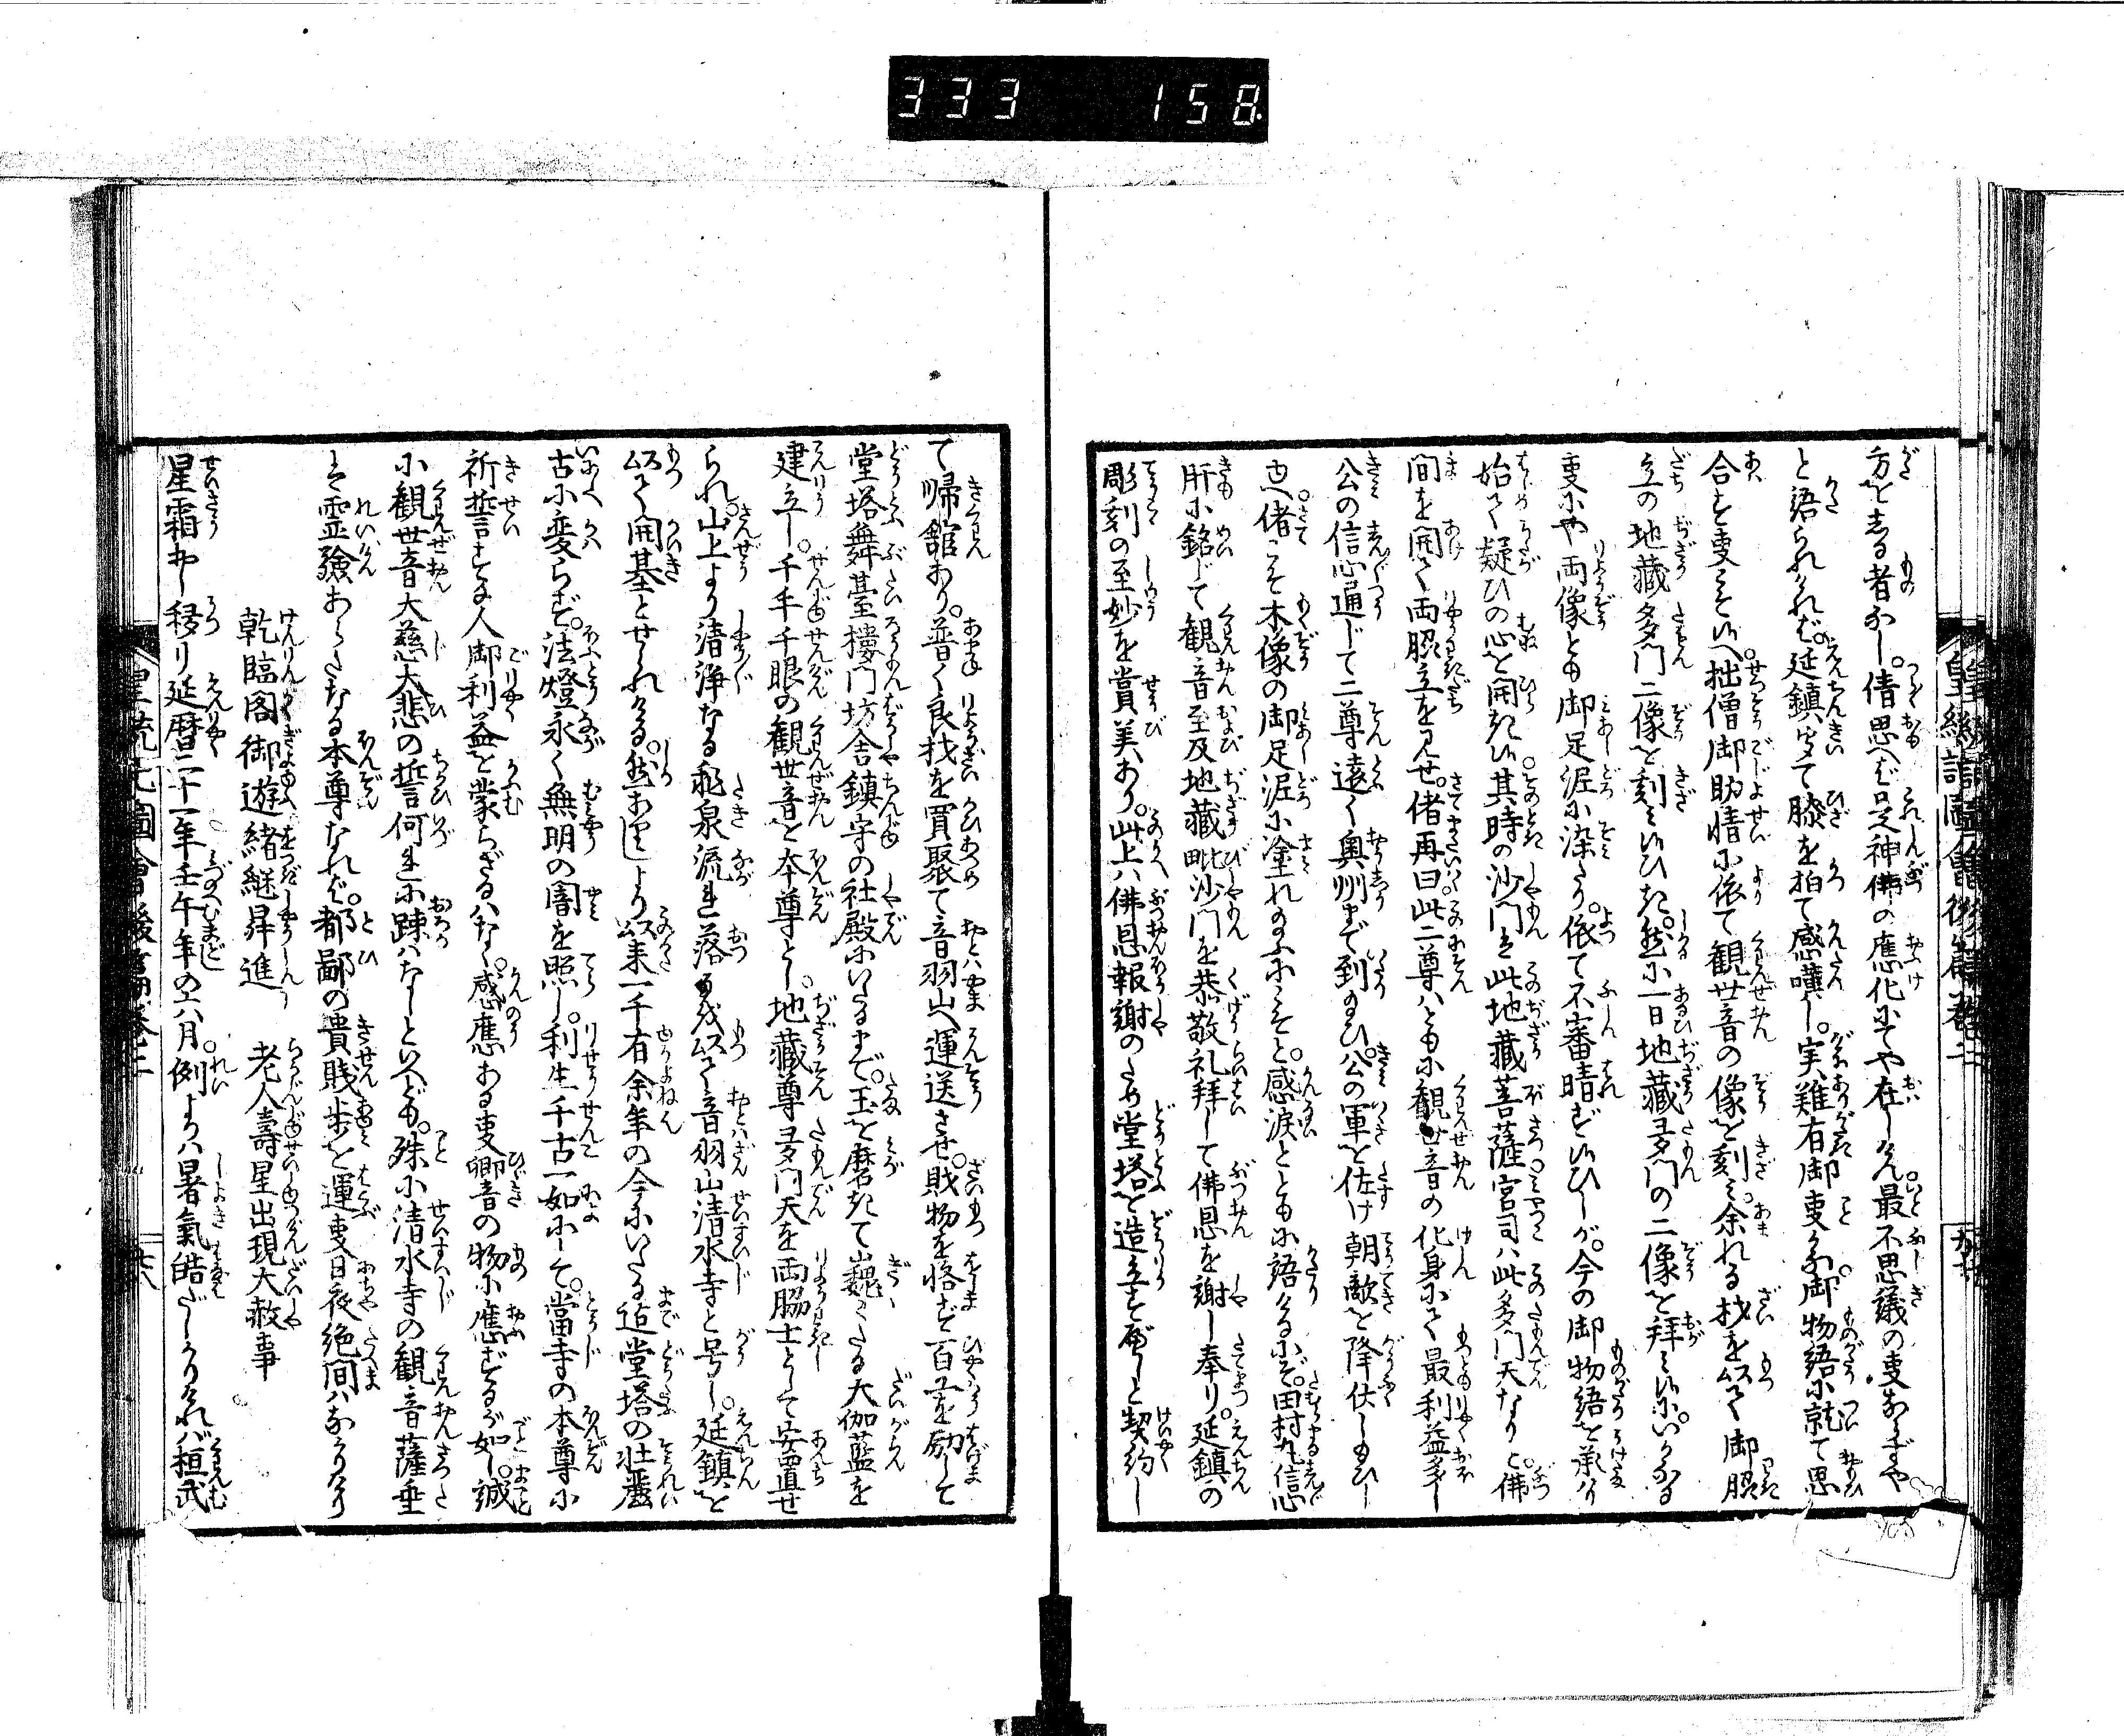 333 158
方を知る者なし。倩思へば是神佛の應化にてや在しけん。最不思議の事ならずや
と語られければ。延鎮聞て膝を拍て感嘆し。実難有御事かな。御物語に就て思
合す事こそ候へ。拙僧御助情に依て観世音の像を刻み。余れる材を以て御脇
立の地藏多門二像を刻み候ひき。然に一日地藏多門の二像を拜み候に。いかなる
事にや両像とも御足泥に染たり。依て不審晴ず候ひしが。今の御物語を承り
始て疑ひの心を開き候。其時の沙門は此地藏菩薩。宮司ハ此多門天なりと。佛
間を開て両脇立を見せ。偖再曰此二尊ハともに観世音の化身にて最利益多し
公の信心通じて二尊遠く奥州まで到り給ひ。公の軍を佐け朝敵を降伏し給ひし
也。偖こそ木像の御足泥に塗れ給ふにこそと。感涙とともに語りけるにぞ。田村丸信心
肝に銘じて観音至及地藏毗沙門を恭敬礼拜して佛恩を謝し奉り。延鎮の
彫刻の至妙を賞美あり。此上ハ佛恩報謝のため堂塔を造立すべしと契約し
て帰舘あり。普く良材を買聚て音羽山へ運送させ。財物を悋ず百工を励して
堂塔舞臺樓門坊舎鎮守の社殿にいたるまで。玉を磨きて巍々たる大伽藍を
建立し。千手千眼の観世音を本尊とし。地藏尊多門天を両脇士として安置せ
られ。山上より清浄なる飛泉流れ落るを以て音羽山清水寺と号し。延鎮を
以て開基とせられける。然ありしより以来一千有余年の今にいたる迄堂塔の壮麗
古に変らず。法燈永く無明の闇を照し。利生千古一如にして。當寺の本尊に
祈誓する人御利益を蒙らざるハなく。感應ある事響音の物に應ずるが如し。誠
に観世音大慈大悲の誓何れに踈ハなしといへども。殊に清水寺の観音薩埵
は霊驗あらたなる本尊なれば。都鄙の貴賎歩を運事日夜絶間ハなかりけり
乾臨閣御遊緒継昇進 老人壽星出現大赦事
星霜押移り延暦二十一年壬午年の六月。例よりハ暑氣酷だしかりければ桓武